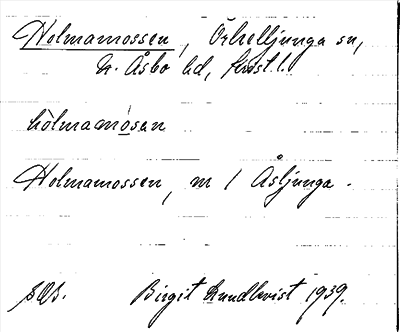 Holmamossen, Örkelljunga sn,
N. Åsbo hd, Krist. l.
hòlmamòsan
Holmamossen, m / Åsljunga.
Birgit Lundkvist 1939.